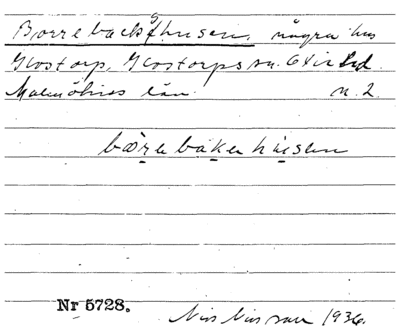 Borrebackshusen, några hus
Glostorp, Glostorps sn. Oxie hd.
Malmöhus län. n. 2.
bòrebàkerhùsen
Nr 5728.
Nils Nilsson 1936.